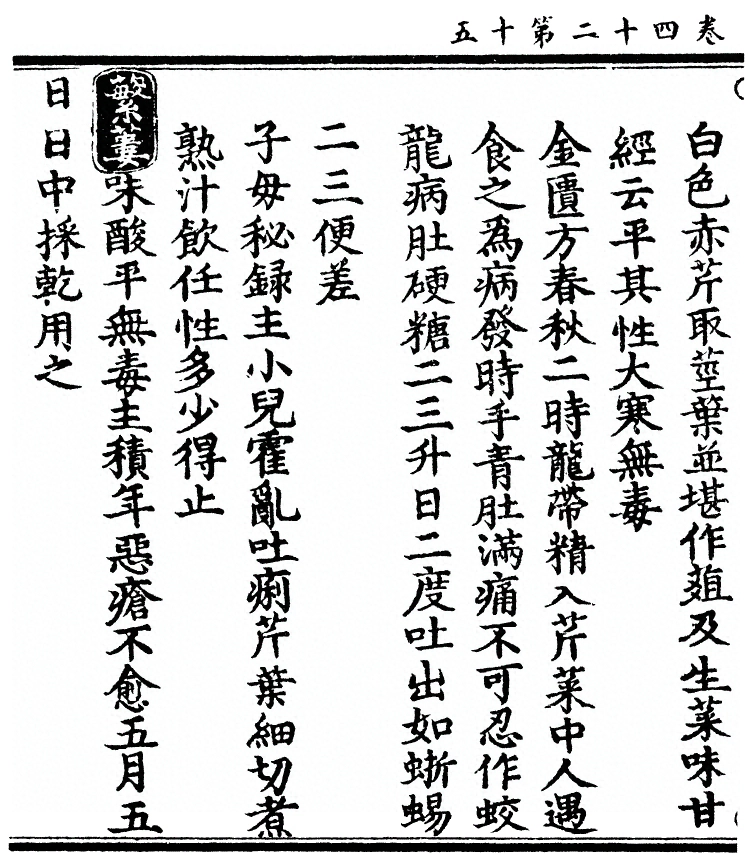 卷四十二第十五
白色赤芹取莖葉並堪作葅及生菜味甘
經云平其性大寒無毒
金匱方春秋二時龍帶精入芹菜中人遇
食之為病發時手青肚滿痛不可忍作蛟
龍病肚硬糖二三升日二度吐出如蜥蜴
二三便差
子母秘録主小兒霍亂吐痢芹葉細切煮
熟汁飲任性多少得止
蘩蔞味酸平無毒主積年惡瘡不愈五月五
日日中採乾用之